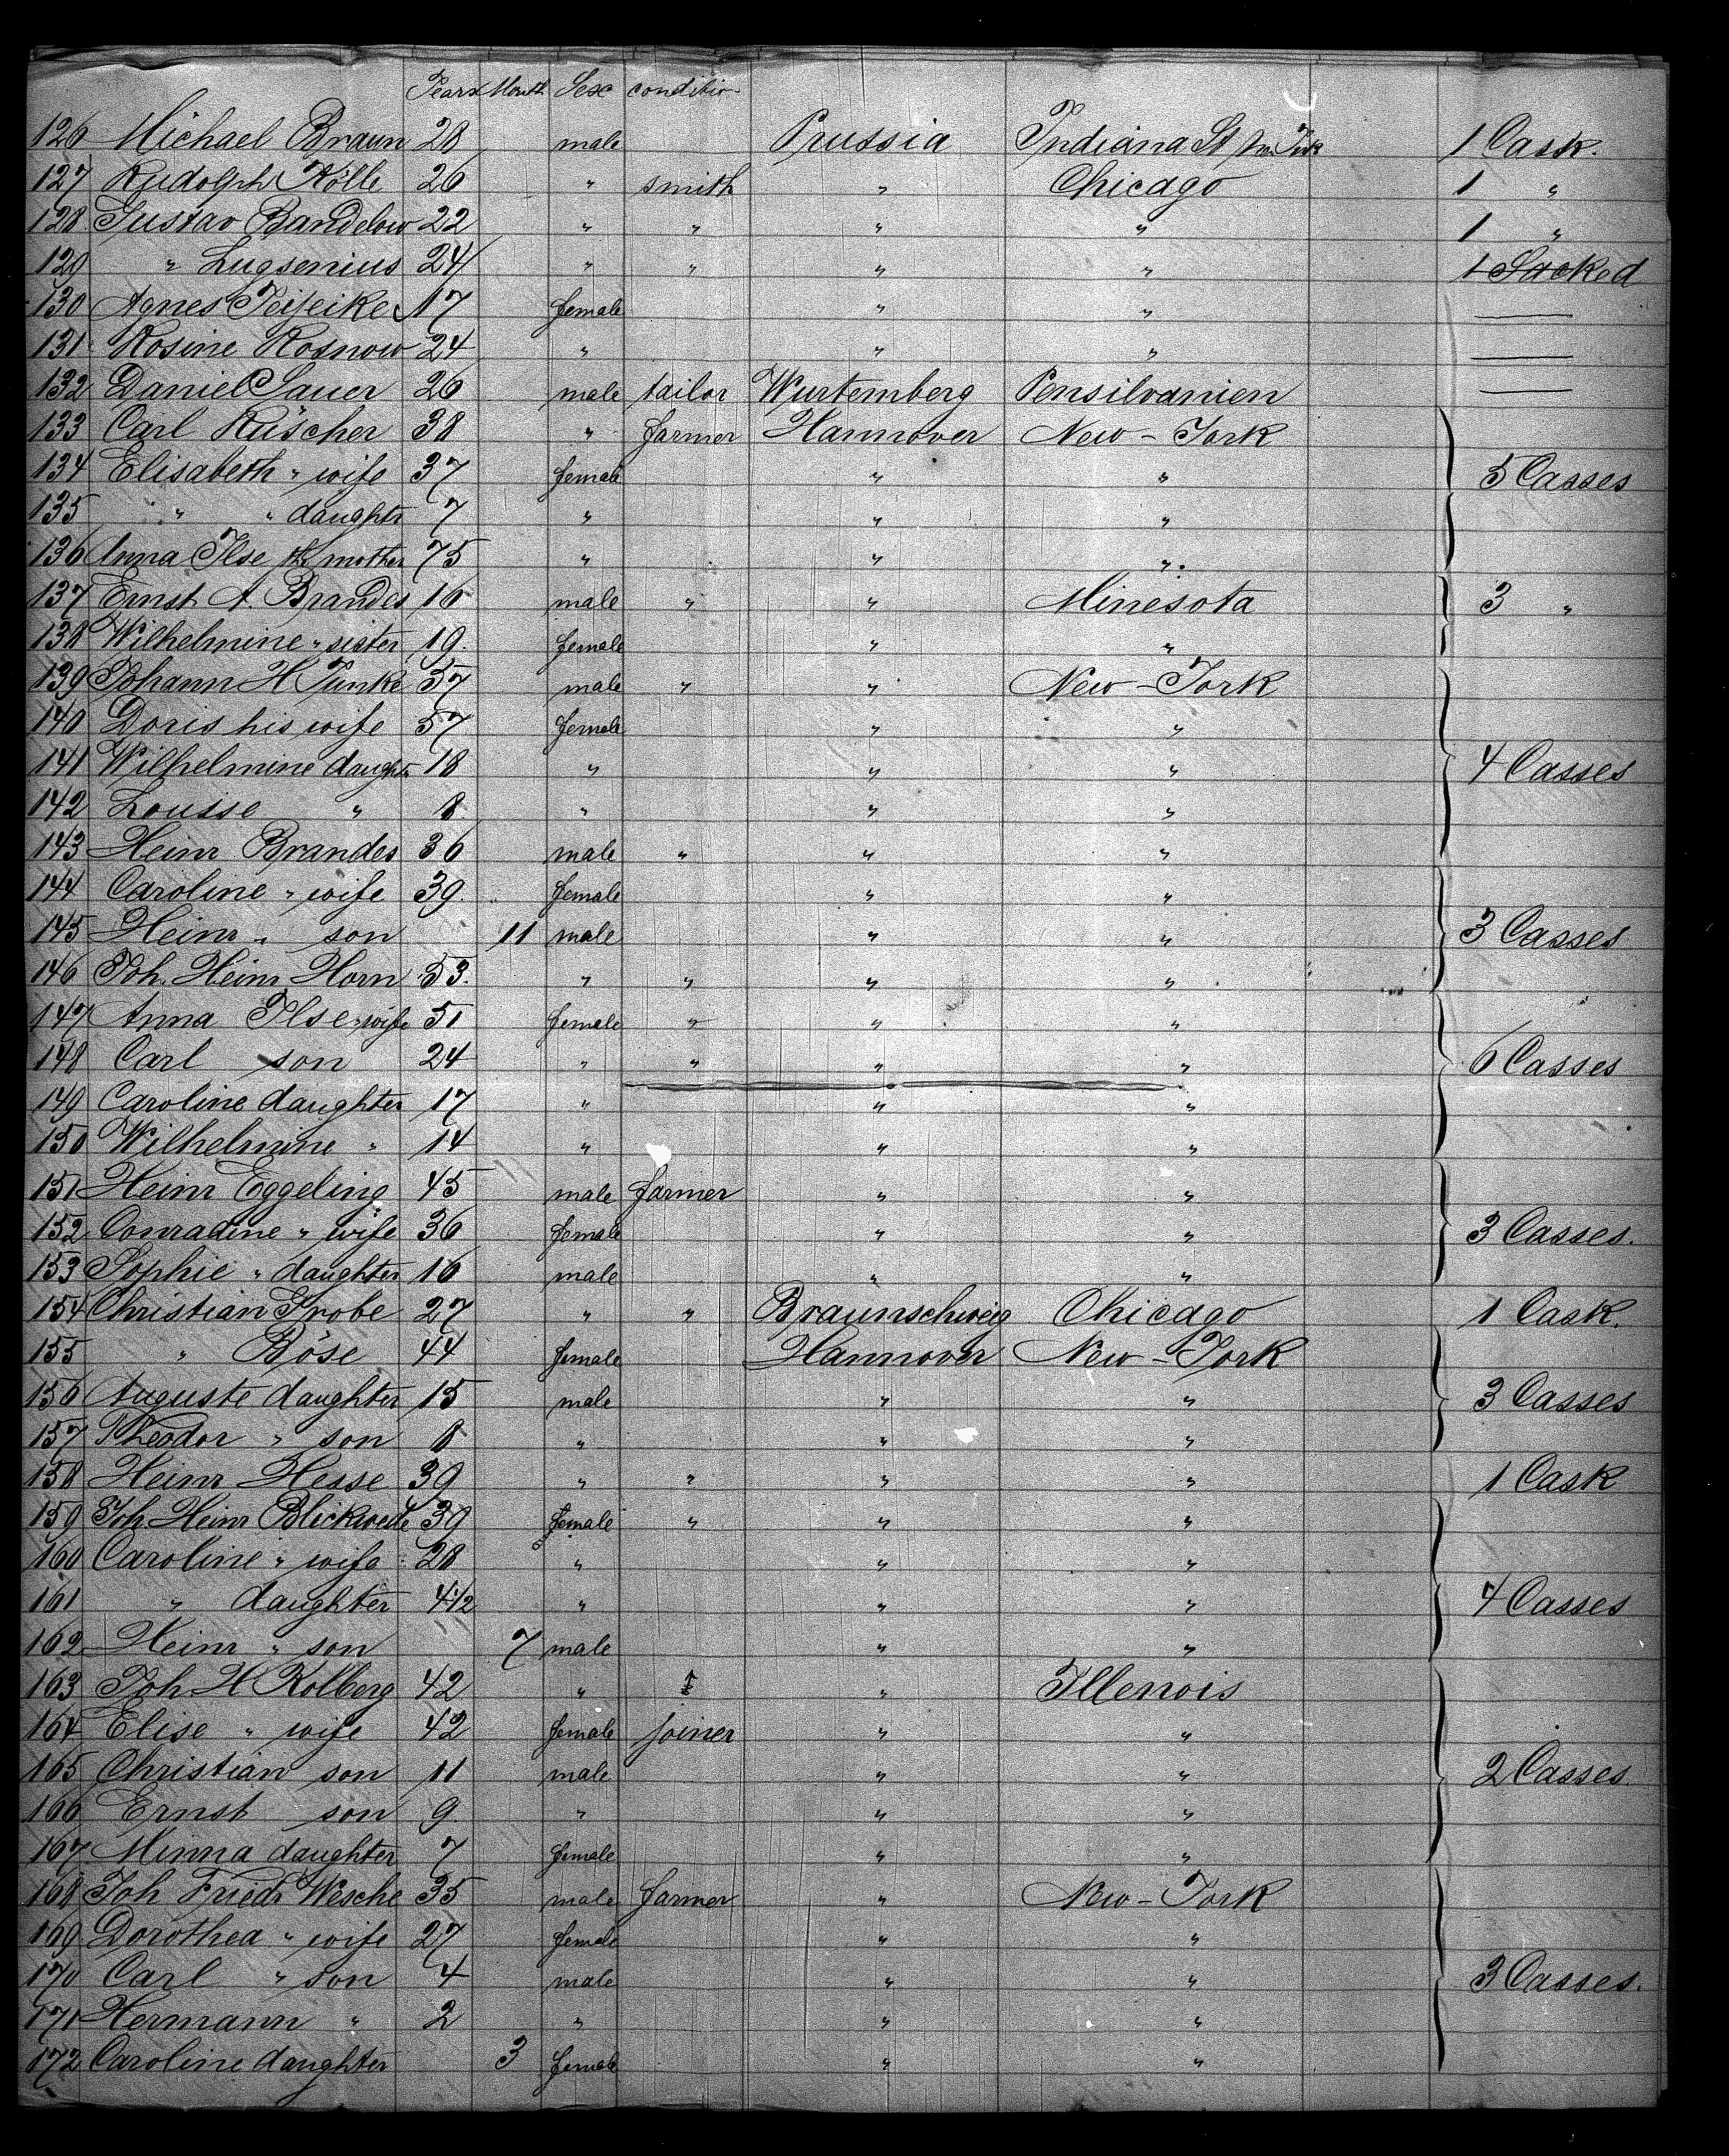 Years Month Sex condition
126 Michael Braun 28 male Prussia Indiana St 1 Cask.
127 Rudolph Kölle 26 " smith " Chicago 1 "
128 Gustav Bandelow 22 " " " " 1 "
129 " Lugsenius 24 " " " " 1 Sacked
130 Agnes 17 female " " —
131 Rosine Rosnow 24 " " " —
132 Daniel Sauer 26 male tailor Wurtemberg Pensilvanien —
133 Carl Rüscher 38 " farmer Hannover New-York
134 Elisabeth " wife 37 female " " 5 Casses
135 " " daughtr 7 " " "
136 Anna Ilse mother 75 " " "
137 Ernst A. Brandes 16 male " " Minesota 3 "
138 Wilhelmine " sister 19. female " "
139 Johann H Funke 57 male " " New-York
140 Doris his wife 57 female " "
141 Wilhelmine daughtr 18 " " " 4 Casses
142 Lousse " 8 " " "
143 Heinr Brandes 36 male " " "
144 Caroline " wife 39. female " "
145 Heinr " son 11 male " " 3 Casses
146 Joh. Heinr Horn 53. " " " "
147 Anna Ilse " wife 51 female " " "
148 Carl son 24 " " " " 6 Casses
149 Caroline daughter 17 " " "
150 Wilhelmine " 14 " " "
151 Heinr Eggeling 45 male farmer " "
152 Conradine " wife 36 female " " 3 Casses.
153 Sophie " daughter 16 male " "
154 Christian Grobe 27 " " Braunschweig Chicago 1 Cask.
155 " Böse 44 female Hannover New-York
156 Auguste daughter 15 male " " 3 Casses
157 Theodor " son 8 " " "
158 Heinr Hesse 39 " " " " 1 Cask
159 Joh Heinr Blickwede 39 female " " "
160 Caroline " wife 28 " " "
161 " daughter 4 1/2 " " " 4 Casses
162 Heinr " son 7 male " "
163 Joh H Kolberg 42 " " Illenois
164 Elise " wife 42 female joiner " "
165 Christian son 11 male " " 2 Casses.
166 Ernst son 9. " " "
167 Minna daughter 7 female " "
168 Joh Friedr Wesche 35 male farmer " New-York
169 Dorothea " wife 27 female " "
170 Carl " son 4 male " " 3 Casses.
171 Hermann " 2 " " "
172 Caroline daughter 3 female " "